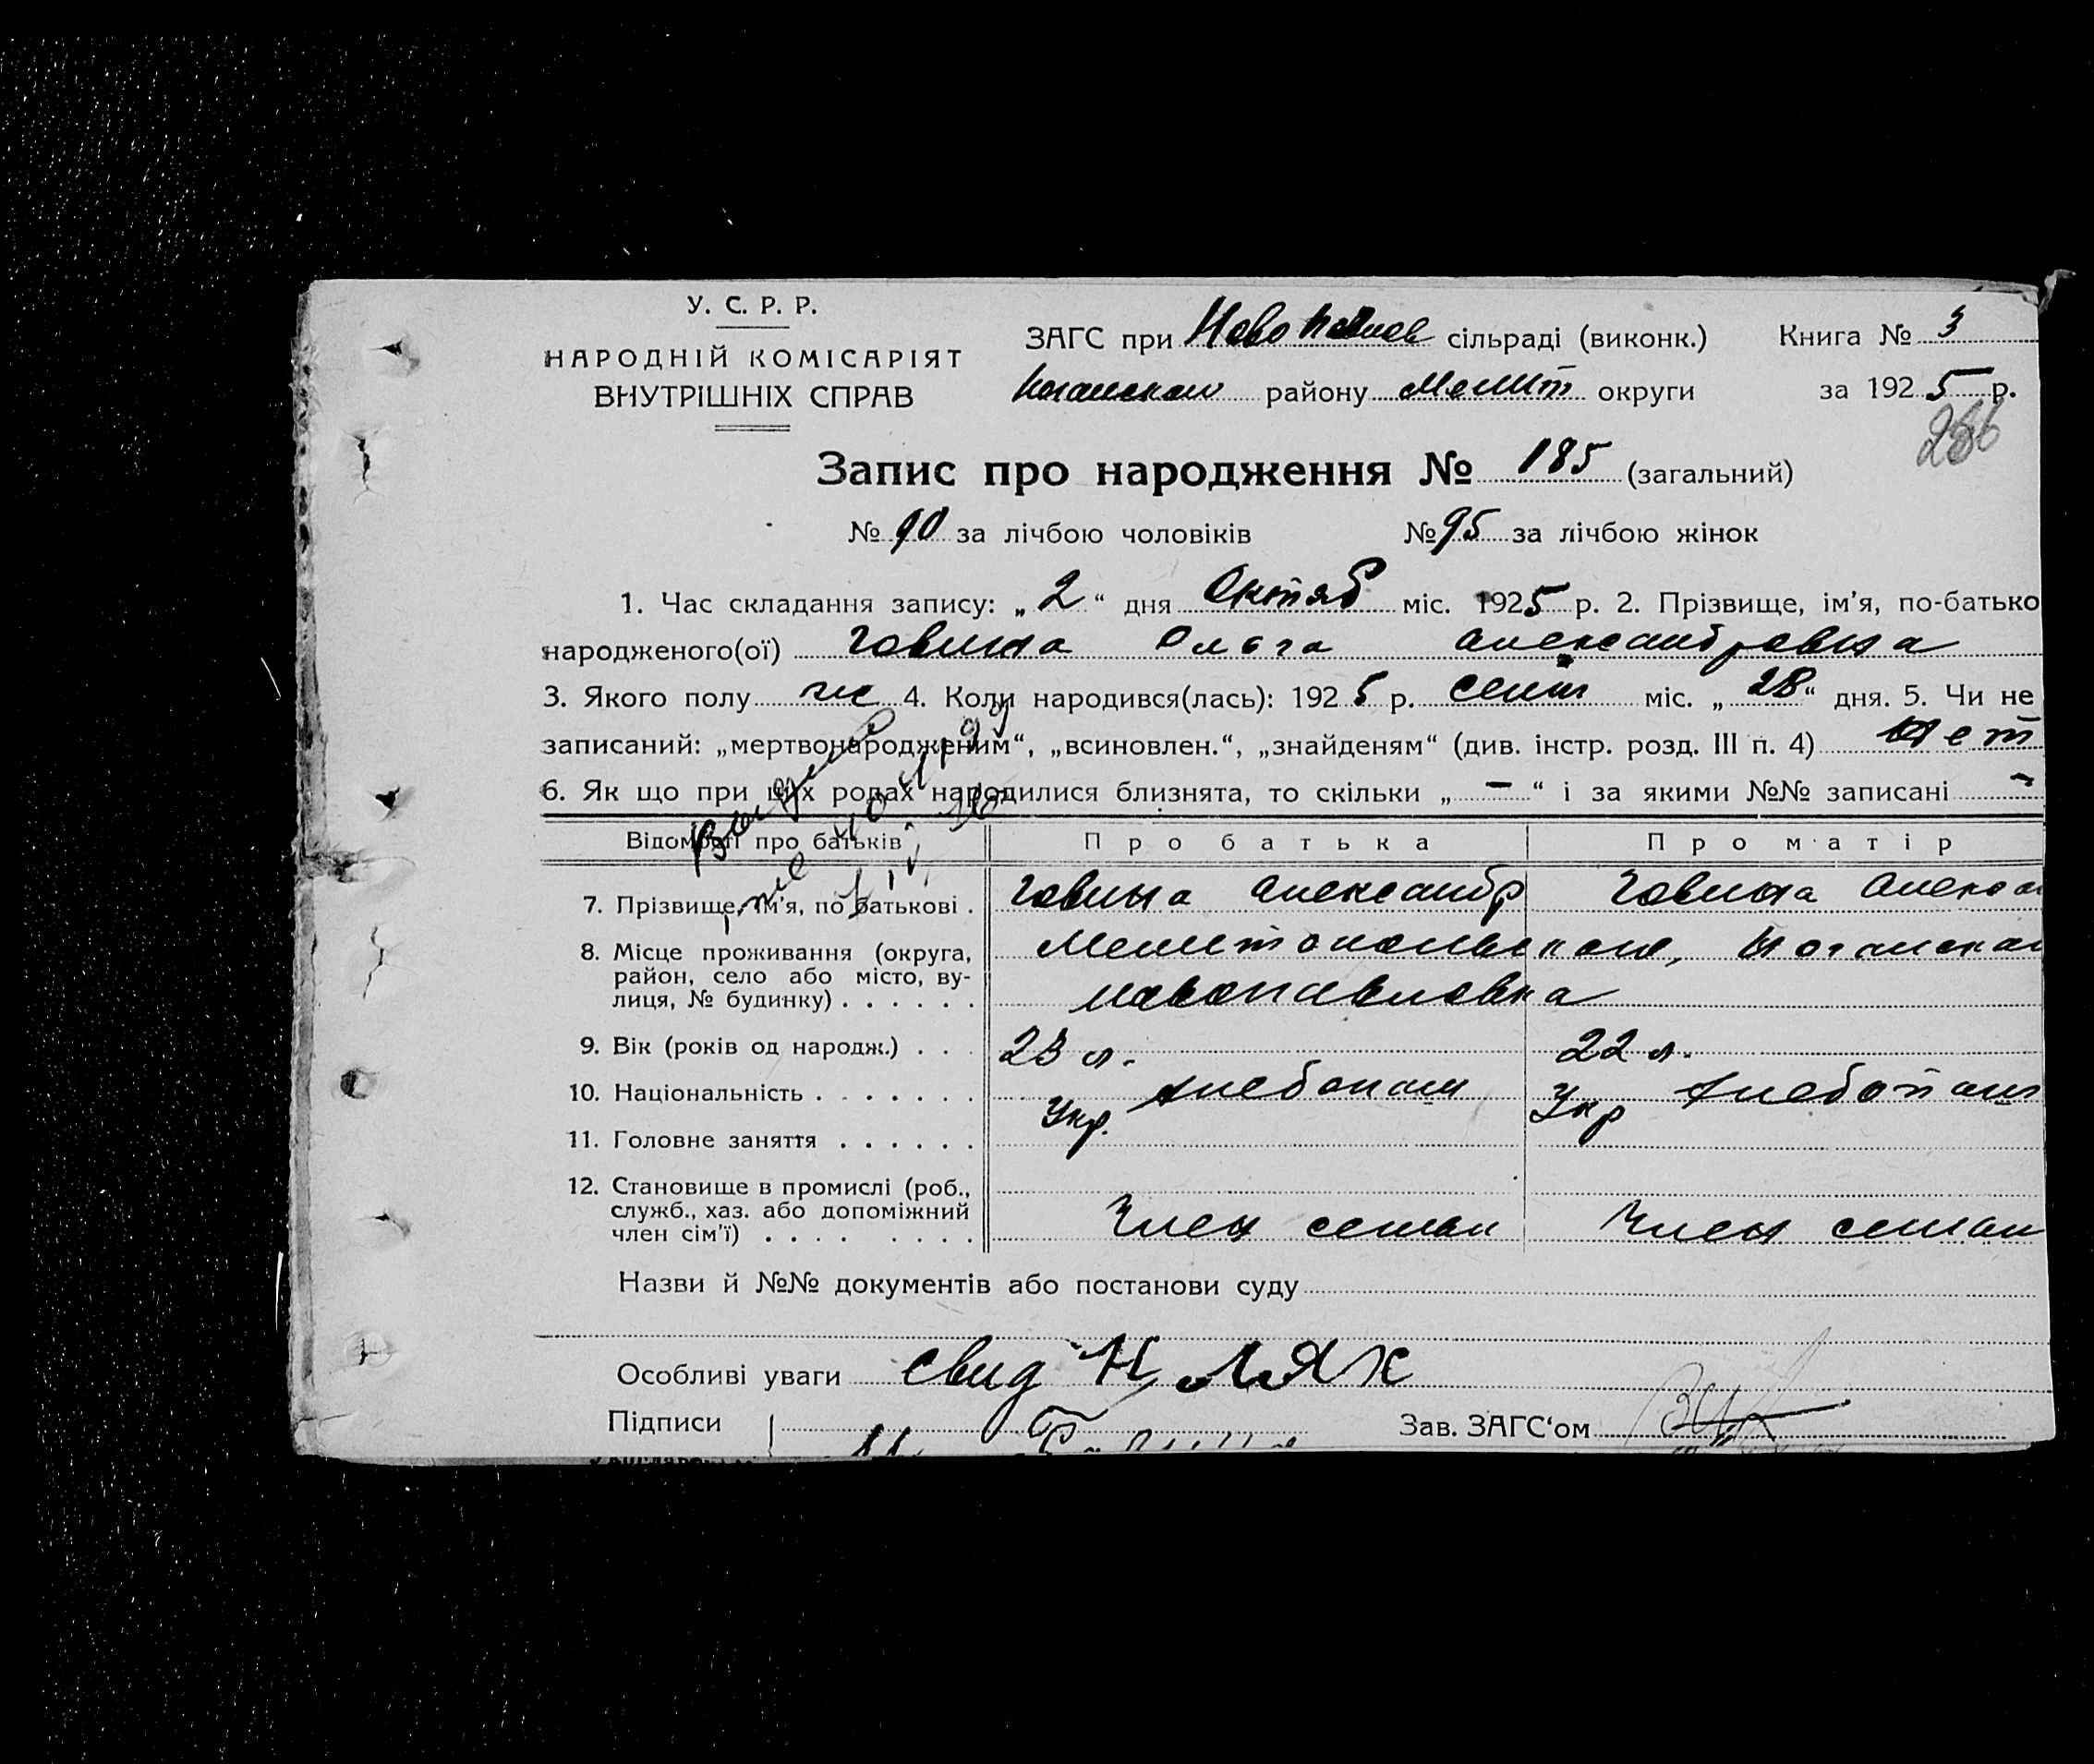 У. С. Р. Р.
НАРОДНІЙ КОМІСАРІЯТ
ВНУТРІШНІХ СПРАВ
ЗАГС при Ново Павлов сільраді (виконк.) Книга № 3
Ногайском району Мелит округи за 1925 р.
Запис про народження № 185 (загальний)
№ 90 за лічбою чоловіків № 95 за лічбою жінок
1. Час складання запису: „2“ дня Октяб міс. 1925 р. 2. Прізвище, ім’я, по-батько
народженого(ої) Говина Ольга Александровна
3. Якого полу ж 4. Коли народився(лась): 1925 р. сент міс. „28“ дня. 5. Чи не
записаний: „мертвонародженим“, „всиновлен.“, „знайденям“ (див. інстр. розд. III п. 4) Нет
6. Як що при цих родах народилися близнята, то скільки „ – “ і за якими №№ записані –
Відомості про батьків Про батька Про матір
7. Прізвище, ім’я, по батькові . Говина Александр Говина Алекса
8. Місце проживання (округа, Мелитопольском, Ногайском
район, село або місто, ву-
лиця, № будинку) . . . . . . Новопавловка
9. Вік (років од народж.) . . . 23 л. 22 л.
10. Національність . . . . . . . Укр. хлебопаш Укр хлебопаш
11. Головне заняття . . . . . .
12. Становище в промислі (роб.,
служб., хаз. або допоміжний
член сім’ї) . . . . . . . . Член семьи Член семьи
Назви й №№ документів або постанови суду
Особливі уваги свид Н ЛЯХ
Підписи Зав. ЗАГС‘ом